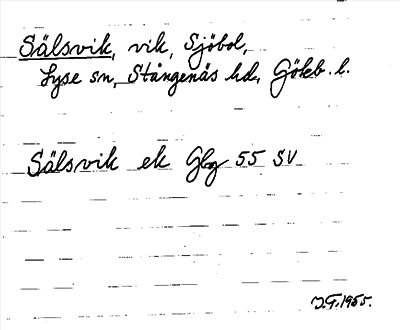 Sälsvik, vik, Sjöbol,
Lyse sn, Stångenäs hd, Göteb. l.
Sälsvik ek Gbg 55 SV
1955.